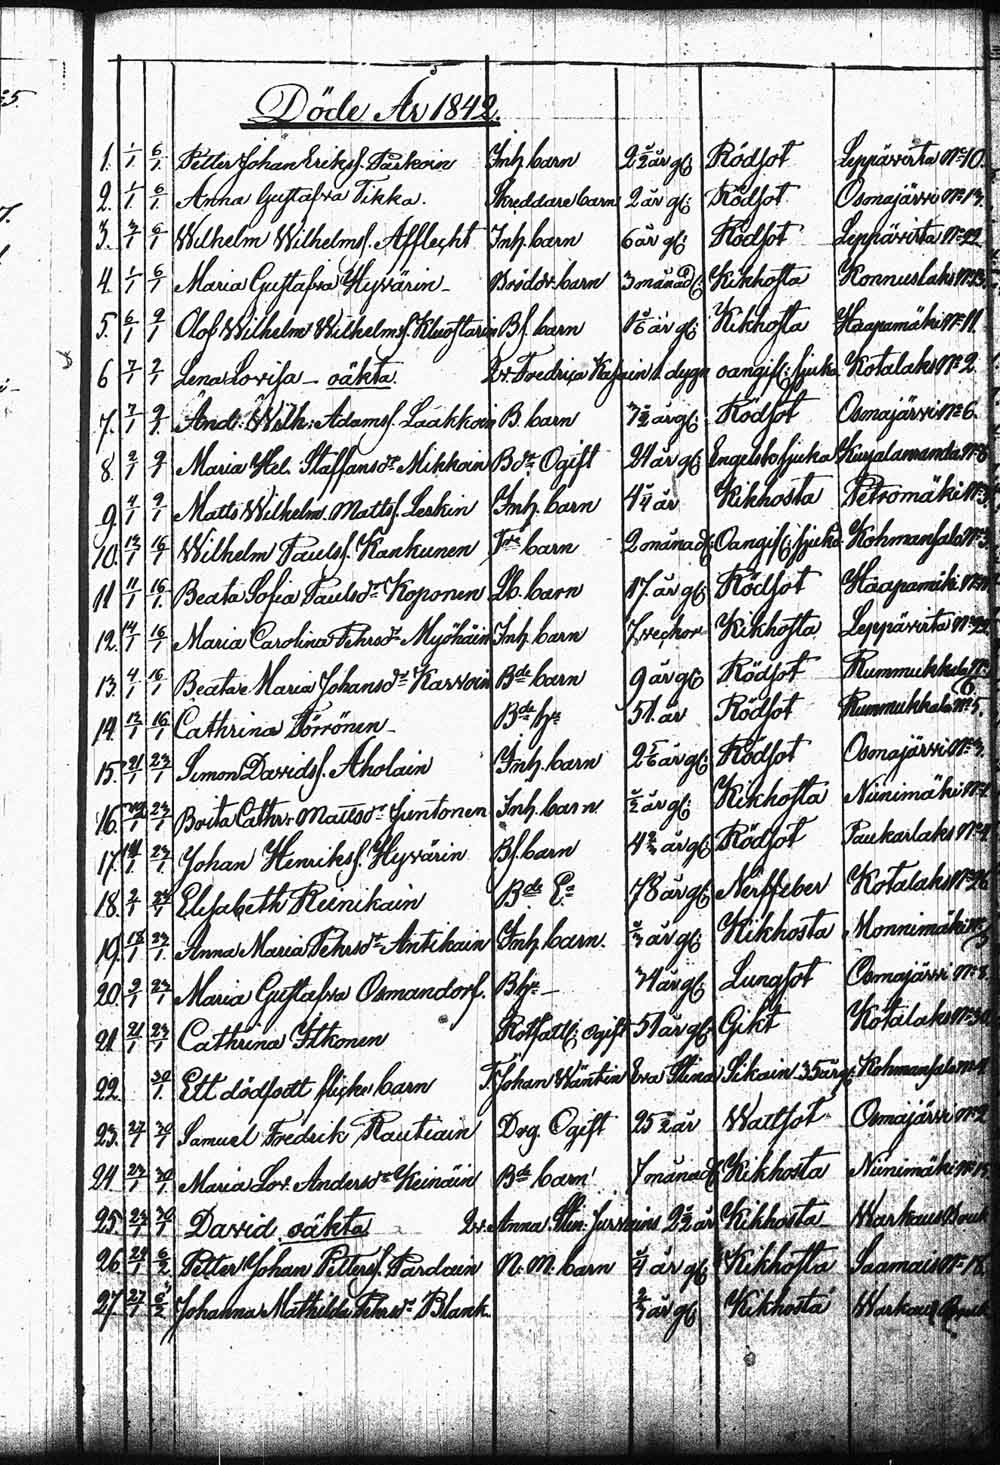 Döde År 1842.
1. 1/1 6/1 Petter Johan Eriksf. Parkoin Inh. barn 2 1/2 år gl: Rödsot Leppävirta No 10.
2. 1/1 6/1 Anna Gustafva Tikka. Skreddare barn 2 år gl: Rödsot Osmajärvi No 13.
3. 3/1 6/1 Wilhelm Wilhelmsf. Afflecht Inh. barn 6 år gl: Rödsot Leppävirta No 22
4. 1/1 6/1 Maria Gustafva Hyvärin Brödr. barn 3 månad gl: Kikhosta Konnuslaks No 13.
5. 6/1 9/1 Olof Wilhelm Wilhelmsf. Bf. barn år gl: Kikhosta Haapamäki No 11.
6 7/1 2/1 Lena Lovisa oäkta. Fredrica Kasain 1 dygn oangif: sjuka Kotalaks No 2.
7. 7/1 9/1 And: Wilh: Adamsf. Laakkoin B. barn 3 1/2 år gl: Rödsot Osmajärvi No 6.
8. 2/1 9/1 Maria Hel. Staffansdr Mikkoin Bdr Ogift 24 år gl. Engelsk sjuka Kurjalaranda No 8
9. 4/1 9/1 Matts Wilhelm Mattsf. Leskin Inh. barn 4 1/4 år Kikhosta Petromäki No 3.
10. 13/1 16/1 Wilhelm Paulsf. Kankunen barn 2 månad gl: Oangif: sjuka Kohmansalo No 3.
11 11/1 16/1 Beata Sofia Paulsdr Koponen Lb. barn 17 år gl: Rödsot Haapamäki
12. 14/1 16/1 Maria Carolina Pehrsdr Myöhäin Inh. barn 7 veckor Kikhosta Leppävirta No 22
13. 4/1 16/1 Beata Maria Johansdr Karvoin Bde barn 9 år gl: Rödsot Rummukkala No 6.
14. 13/1 16/1 Cathrina Törrönen Bde hu 51 år Rödsot Rummukkala No 5.
15. 21/1 23/1 Simon Davidsf. Aholain Inh. barn 2 5/6 år gl: Rödsot Osmajärvi No 3.
16. 23/1 Brita Cathr. Mattsdr Juntonen Inh. barn 1/2 år gl: Kikhosta Niinimäki
17. 23/1 Johan Henriksf. Hyvärin Bf. barn 4 2/3 år gl: Rödsot Paukarlaks No 4.
18. 2/1 Elisabeth Reinikain Bde Ea 78 år gl: Nerffeber Kotalaks No 26
19. 18/1 23/1 Anna Maria Pehrsdr Antikain Inh. barn. år gl: Kikhosta Monnimäki
20. 9/1 23/1 Maria Gustafva Osmandorf. Bhu 34 år gl: Lungsot Osmajärvi No 8.
21 21/1 23/1 Cathrina Itkonen Rotfattig: Ogift 51 år gl: Gikt Kotalaks No 30
22. 30/1 Ett dödfödt flicke barn F. Johan Wäntin Eva Stina Sikain 35 år gl: Kohmansalo No 4
23. 27/1 30/1 Samuel Fredrik Rautiain Drg. Ogift 25 1/2 år Wattsot Osmajärvi No 2
24 23/1 30/1 Maria Lov. Andersdr Keinäin Bde barn 7 månad gl: Kikhosta Niinimäki
25. 23/1 30/1 David oäkta Anna Stin: 2 1/2 år Kikhosta Warkaus Bruk
26. 24/1 6/2 Petter Johan Pettersf. Pardain N: M. barn 1/4 år gl: Kikhosta Saamais No 18.
27. 27/1 6/2 Johanna Mathilda Pehrsdr Blank. år gl: Kikhosta Warkaus Bruk